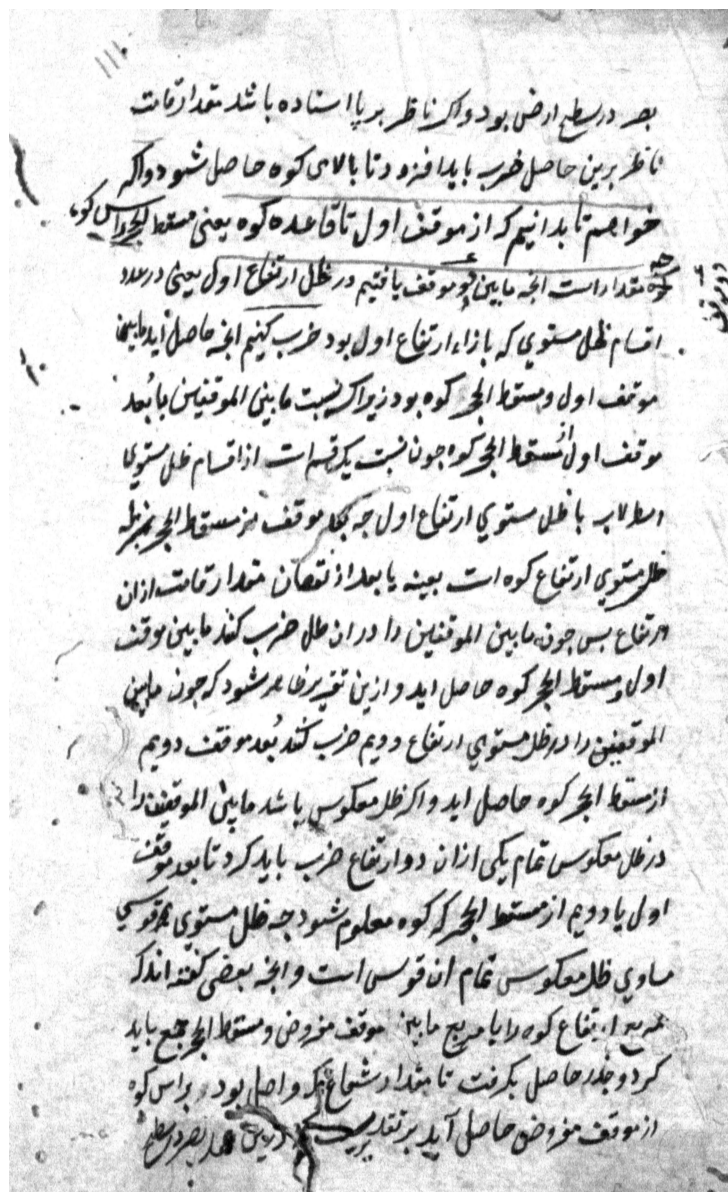 بصر در سطح ارض بود و اکر ناظر بر پا استاده باشد مقدار قامت
ناظر برین حاصل ضرب باید افزود تا بالای کوه حاصل شود و اکر
خواهیم تا بدانیم که از موقف اول تا قاعده کوه یعنی مسقط الحجر
مقدار است انچه ما بین دو موقف یافتیم در ظل ارتفاع اول یعنی در عدد
اقسام ظل مستوی که بازاء ارتفاع اول بود ضرب کنیم انچه حاصل آید مابین
موقف اول و مسقط الحجر کوه بود زیرا که نسبت ما بین الموقفین با بُعد
موقف اول از مسقط الحجر کوه چون نسبت یک قسم است از اقسام ظل مستوی
با ظل مستوی ارتفاع اول چه بعد موقف از مسقط الحجر بمنزله
ظل مستوی ارتفاع کوه است بعینه یا بعد از نقصان مقدار قامت ازان
ارتفاع بس جون ما بین الموقفین را در ان ظل ضرب کنند ما بین موقف
اول و مسقط الحجر کوه حاصل اید و ازین تقریر ظاهر شود که جون مابین
الموقفین را در ظل مستوی ارتفاع دویم ضرب کنند بُعد موقف دویم
از مسقط الحجر کوه حاصل اید و اکر ظل معکوس باشد ما بین الموقفین را
در ظل معکوس تمام یکی ازان دو ارتفاع ضرب باید کرد تا بعد موقف
اول یا دویم از مسقط الحجر که کوه معلوم شود جه ظل مستوی هر قوسی
مساوی ظل معکوس تمام ان قوس است و انچه بعضی کفته اند که
مربع ارتفاع کوه را با مربع ما بین موقف مفروض و مسقط الحجر جمع باید
کرد و جذر حاصل بکرفت تا مقدار شعاع که واصل بود براس کوه
از موقف مفروض حاصل آید بر تقدیریست